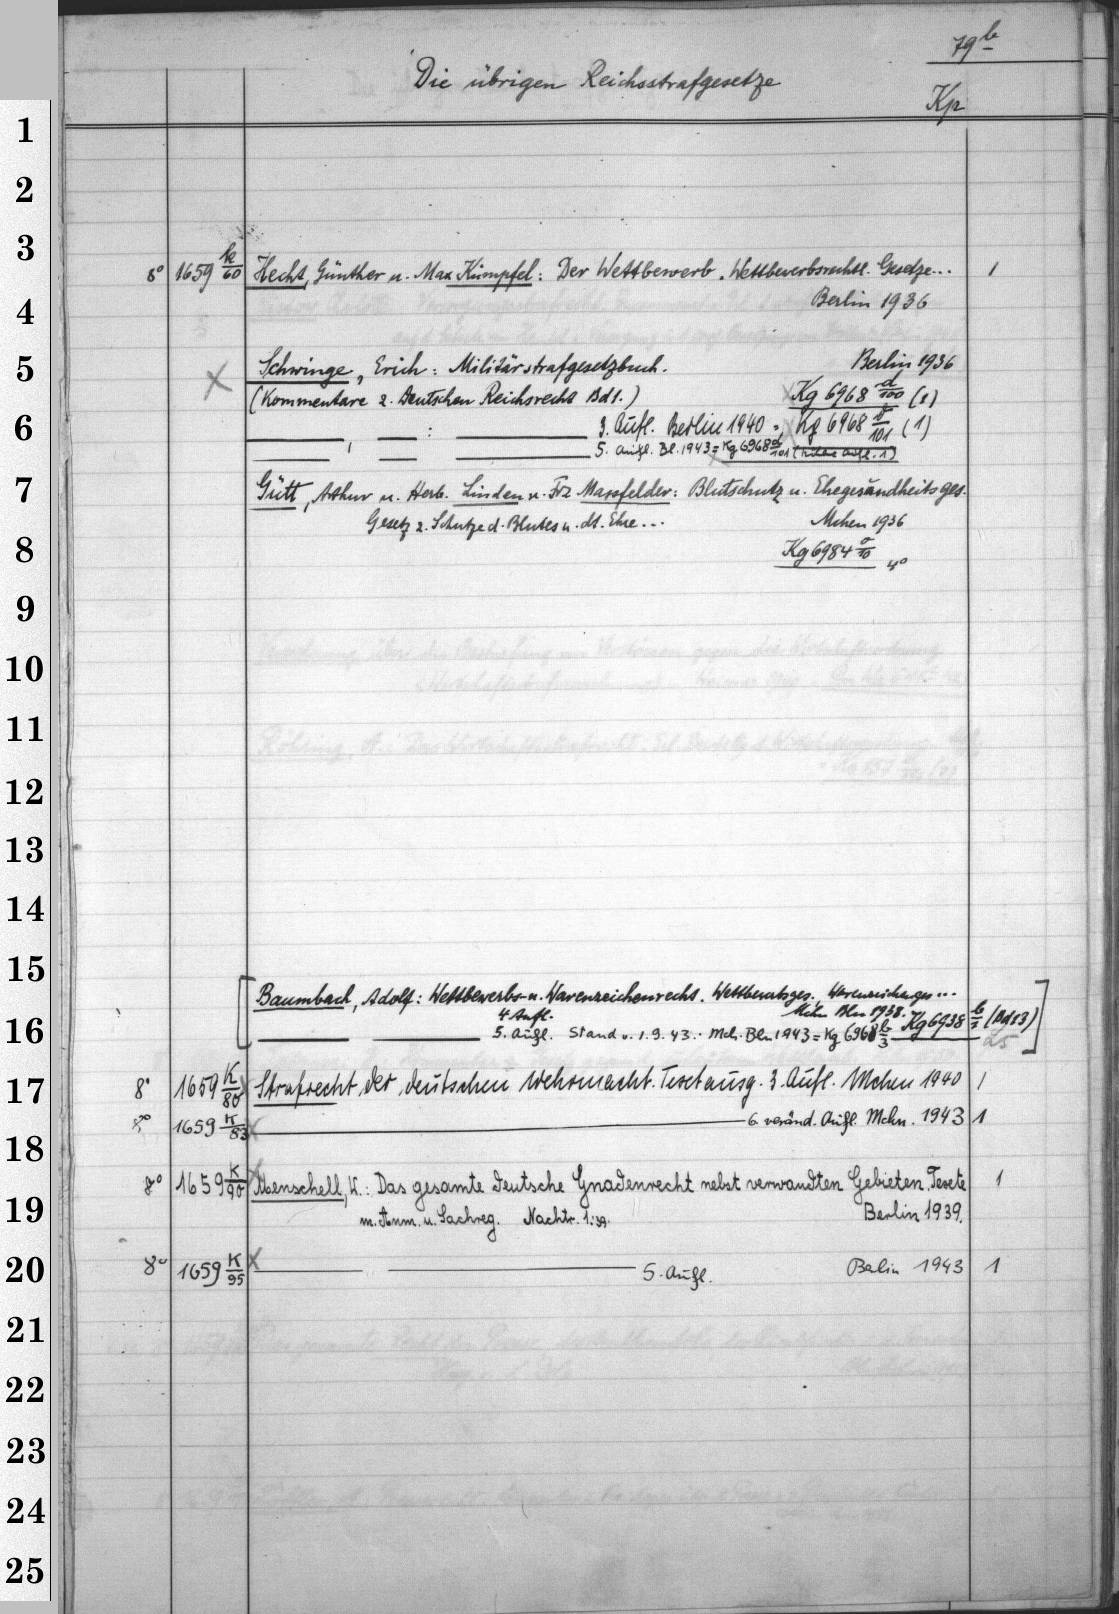 79b
Die übrigen Reichsstrafgesetze
Kp
1
2
3
8° 1659 k/60 Hecht, Günther u. Max Kümpfel: Der Wettbewerb. Wettbewerbsrechtl. Gesetze... 1
4
Berlin 1936
5
Schwinge, Erich: Militärstrafgesetzbuch. Berlin 1936
(Kommentare z. Deutschen Reichsrecht Bd 1.) Kg 6968 d/100 (1)
6
—, — : — 3. Aufl. Berlin 1940 = Kg 6968 d/101 (1)
— — — 5. Aufl. Bl. 1943 = Kg 6968 d/101
7
Gütt, Arthur u. Herb. Linden u. Frz Massfelder: Blutschutz u. Ehegesundheitsges.
Gesetz z. Schutze d. Blutes u. dt. Ehre... Mchen 1936
8
Kg 6984 o/10 4°
9
10
11
12
13
14
15
Baumbach, Adolf: Wettbewerbs- u. Warenzeichenrecht. Wettbewbsges., Warenzeichenges...
4 Aufl. Mchn Bln 1938. Kg 6938 b/3 (Bd 13)
16
— — 5. Aufl. Stand v. 1.9.43. Mch. Bln 1943 = Kg 6968 b/3 25
17
8° 1659 K/80 Strafrecht der deutschen Wehrmacht. Textausg. 3. Aufl. Mchen 1940 1
8° 1659 K/83 — 6. veränd. Aufl. Mchn. 1943 1
18
8° 1659 K/90 Menschell, W.: Das gesamte deutsche Gnadenrecht nebst verwandten Gebieten. Texte 1
19
m. Anm. u. Sachreg. Nachtr. 1:39. Berlin 1939.
20
8° 1659 K/95 — — 5. Aufl. Berlin 1943 1
21
22
23
24
25